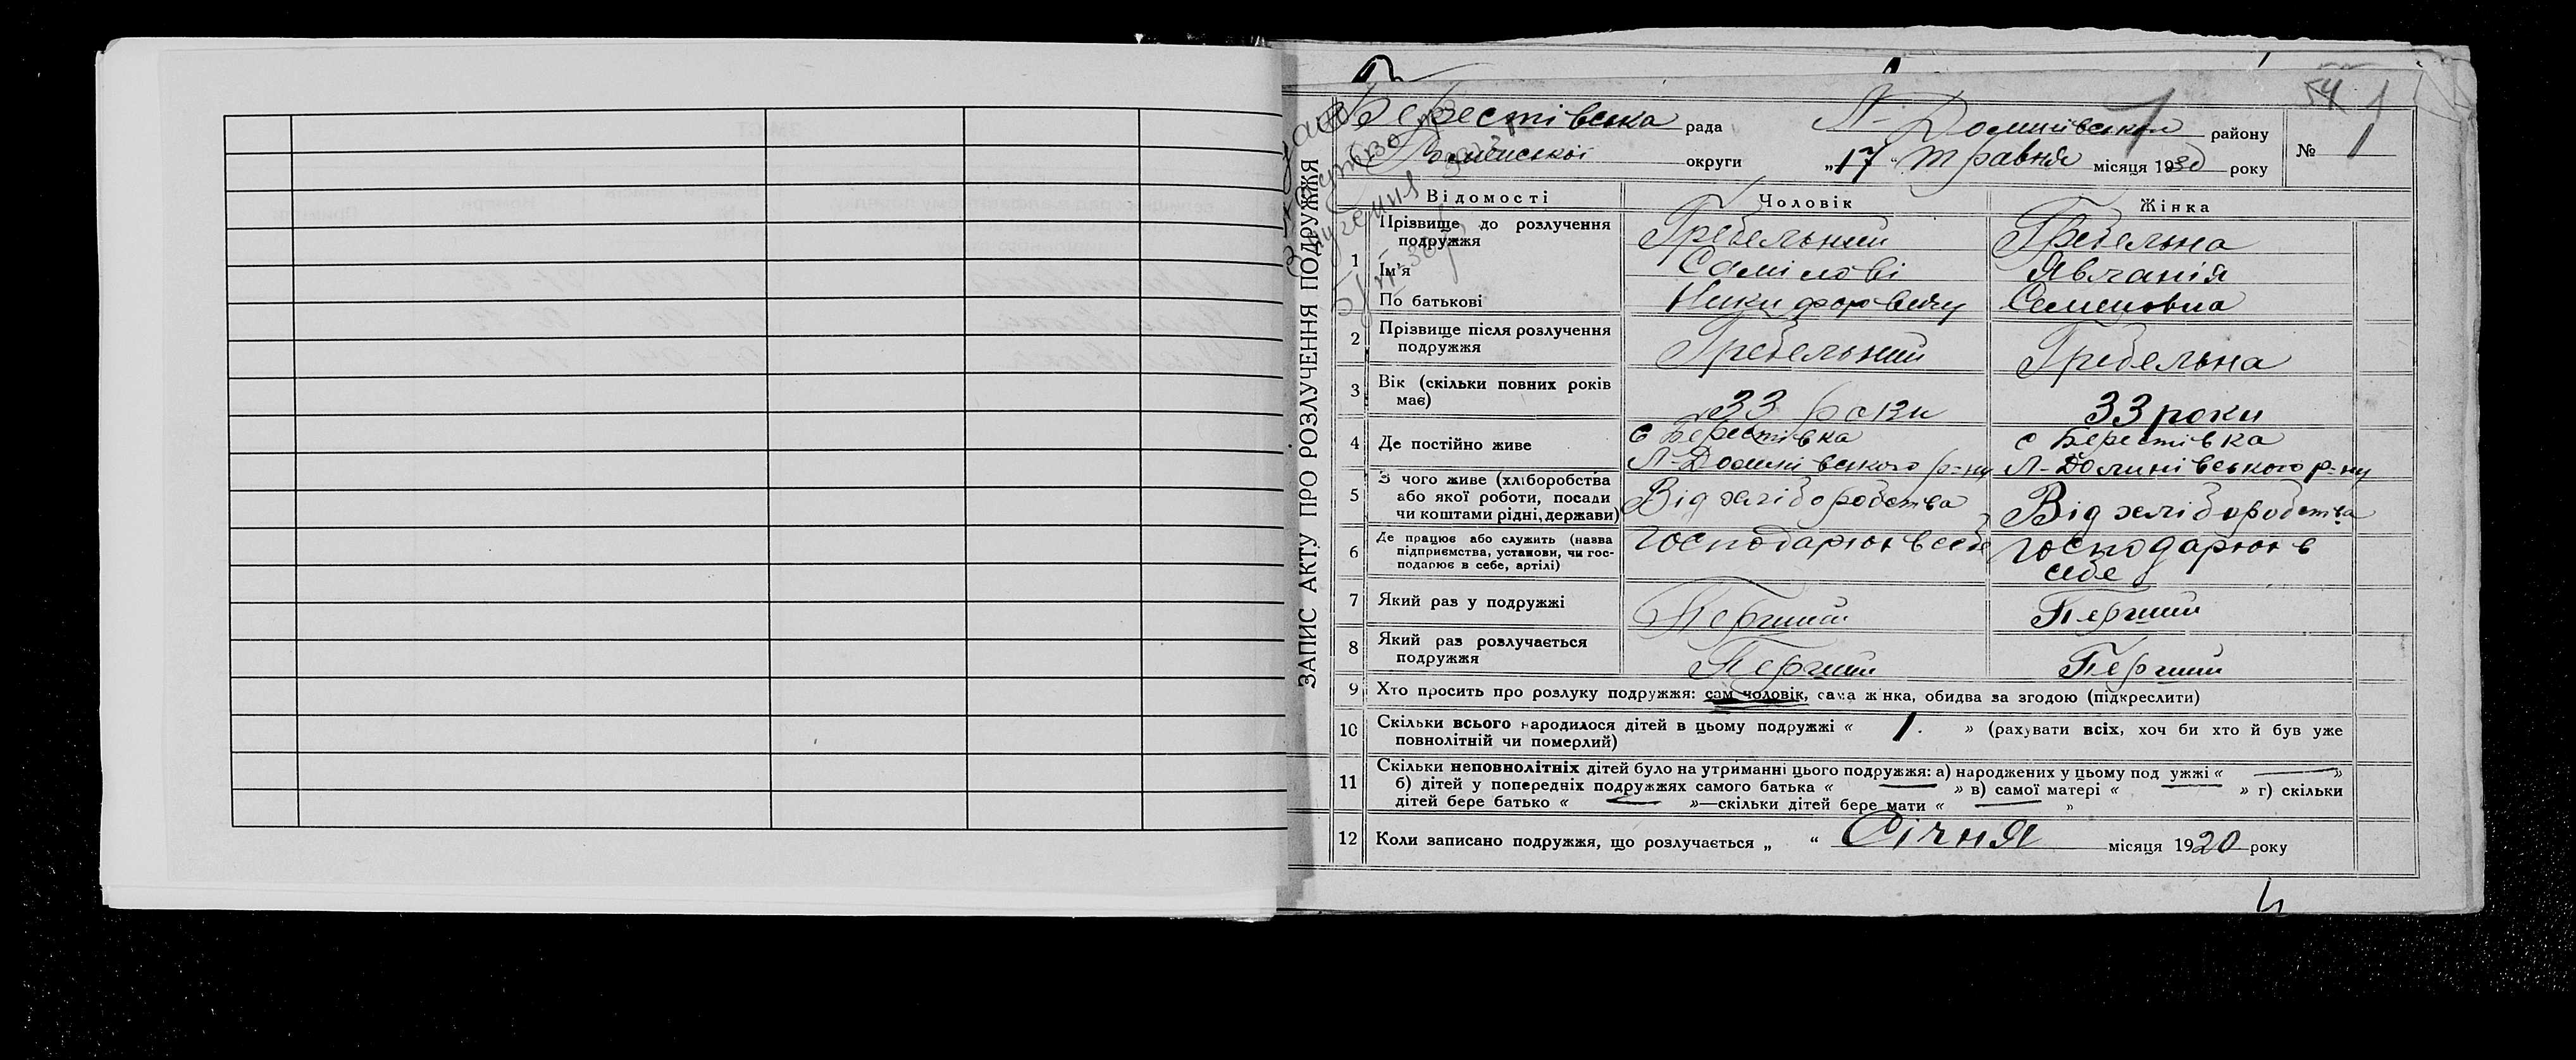 54
1
Берестівська рада Л-Долинівського району № 1
Роменської округи „17“ травня місяця 1930 року
ЗАПИС АКТУ ПРО РОЗЛУЧЕННЯ ПОДРУЖЖЯ
Відомості Чоловік Жінка
1 Прізвище до розлучення подружжя Гребельний Гребельна
Ім'я Самілові Явланія
По батькові Никифоровичу Семеновна
2 Прізвище після розлучення подружжя Гребельний Гребельна
3 Вік (скільки повних років має) 33 роки 33 роки
4 Де постійно живе с Берестівка с Берестівка
Л-Долинівського р-ну Л-Долинівського р-ну
5 З чого живе (хліборобства або якої роботи, посади чи коштами рідні, держави) Від хліборобства Від хліборобства
6 Де працює або служить (назва підприємства, установи, чи господарює в себе, артілі) Господарюю в себе Господарюю в себе
7 Який раз у подружжі Перший Перший
8 Який раз розлучається подружжя Перший Перший
9 Хто просить про розлуку подружжя: сам чоловік, сама жінка, обидва за згодою (підкреслити)
10 Скільки всього народилося дітей в цьому подружжі « 1. » (рахувати всіх, хоч би хто й був уже
повнолітній чи померлий)
11 Скільки неповнолітніх дітей було на утриманні цього подружжя: а) народжених у цьому подружжі « — »
б) дітей у попередніх подружжях самого батька « — » в) самої матері « — » г) скільки
дітей бере батько « — »—скільки дітей бере мати « — »
12 Коли записано подружжя, що розлучається „ “ Січня місяця 1920 року